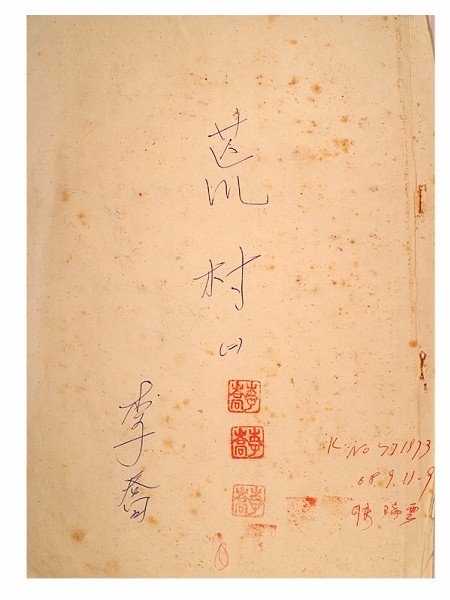 荒村(一)
李喬
李喬
李喬
李喬
K No
68.9.11.9
瑞雲